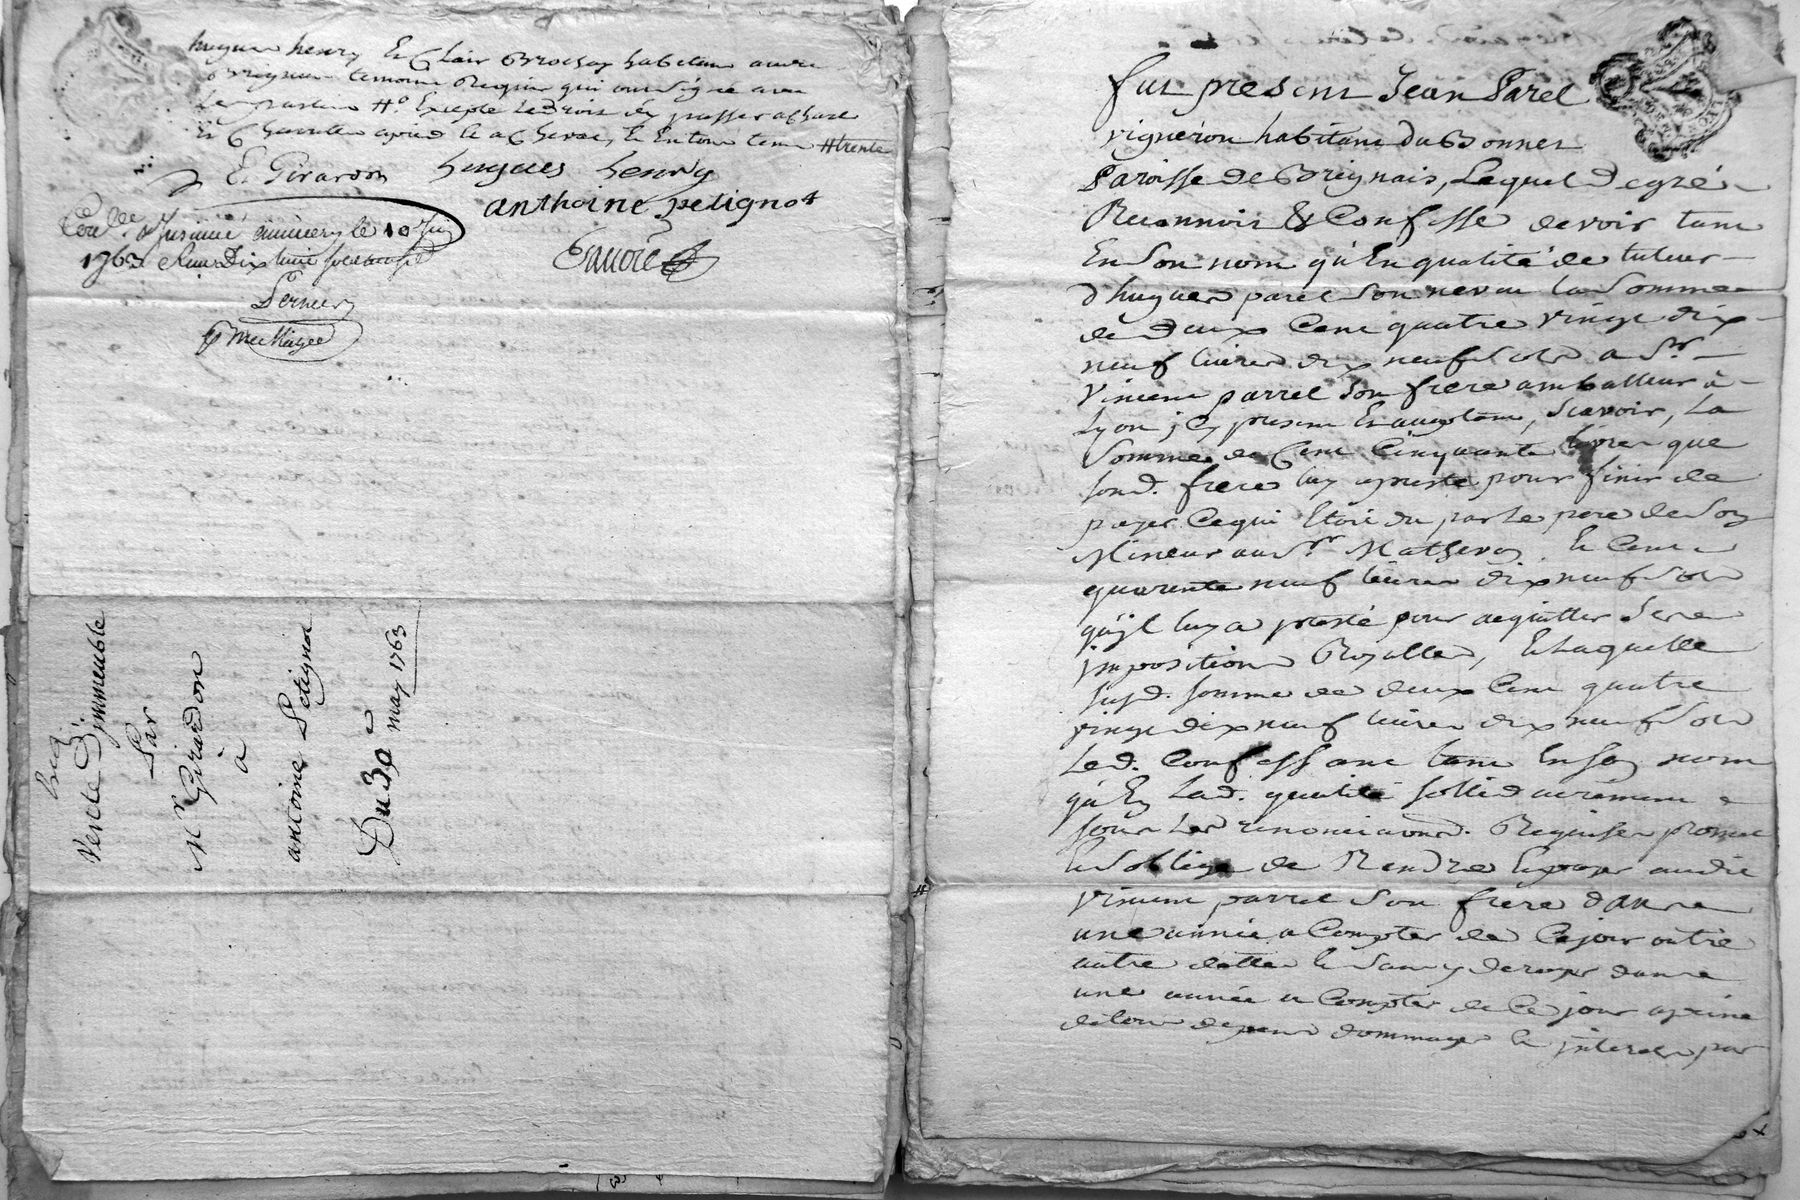 hugues henry Et Clair Brochay habitans audit
Brignais temoins Requis qui ont signé avec
les parties Ho Excepte le droit de passer a char
Et Charrette apres le acheve, Et En tout tems # trente
E. Girardon hugues henry
anthoine petignot
Coll. de Insinué le 10
1763 Reçu Dix huit sols
Vente D'immeuble
Par
Mr Girardon
à
antoine Petignot
Du 30e
may 1763
fut present Jean Parel
vigneron habitant du Bonnet
Paroisse de Brignais, Lequel de gré
Reconnois & Confesse devoir tant
En son nom qu'En qualité de tuteur
d'hugues parel son neveu la somme
de deux Cent quatre vingt dix
neuf livres dix neuf sols a Sr
Vincent parrel son frere amballeur à
Lyon, icy present Et acceptant, scavoir, La
somme de Cent Cinquante livres que
sond. frere luy a presté pour finir de
payer Ce qui Etoit du par le pere de son
Mineur au Sr Mathevon, Et Cent
quarente neuf livres dix neuf sols
qu'jl luy a presté pour acquitter Ses
jmpositions Royalles, Et Laquelle
susd. somme de deux Cent quatre
vingt dix neuf livres dix neuf sols
Led. Confessant tant En son nom
qu'En Lad. qualité sollidairement
sous Les renonciaons. Requises promet
Et s'oblige de Rendre Et payer audit
Vincent parrel son frere dans
une année a Compter de Ce jour outre
autre dettes Et sans y deroger dans
une année a Compter de Ce jour a peine
de tous depens dommages Et jnterets par